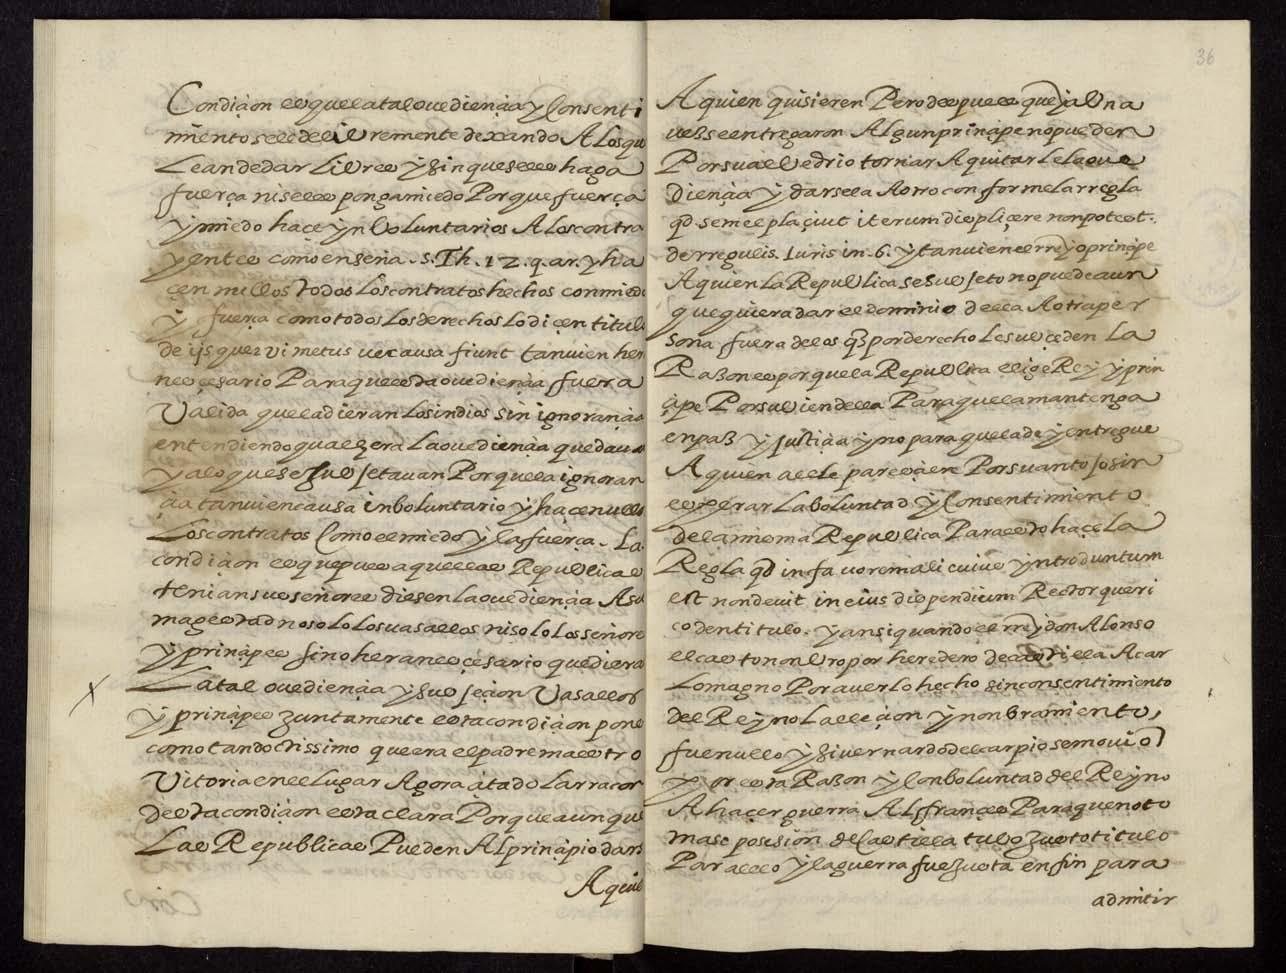 Condiçion es que la tal ovediençia y Consenti
miento se le de liv remente dexando A los que
Le an de dar Livres y sin que se les haga
fuerça ni se les ponga miedo Porque fuerça
y miedo haçe ynboluntarios A los contra
yentes como enseña .S.Th. 12. q. ar. y ha
çen nullos todos Los contratos hechos con miedo
y fuerça como todos Los derechos Lo diçen titul
de ijs que vi metus ve causa fiunt tanvien hera
neçesario Para que esta ovediençia fuera
Valida que la dieran Los indios sin ignorançia
entendiendo qual hera La ovediençia que davan
y a lo que se suvjetavan Porque la ignoran
çia tanvien causa inboluntario y haçe nullos
Los contratos Como el miedo y la fuerça. La
condiçion es que pues aquellas Republicas
tenian sus señores diesen La ovediençia A su
magestad no solo Los vasallos ni solo Los señores
y prinçipes sino hera neçesario que diera
La tal ovediençia y suvjeçion Vasallos
y prinçipes juntamente esta condiçion pone
como tan doctissimo que era el padre maestro
Vitoria en el Lugar Agora çitado La rraçon
de esta condiçion esta clara Porque aunque
Las Republicas Pueden Al prinçipio dars
A quie
36
A quien quisieren Pero despues que ya Una
ves se entregaron Algun prinçipe no pueden
Por su alvedrio tornar A quitarle La ove
diençia y darsela A otro conforme la rregla
qd semel plaçuit iterum displiçere non potest.
de rregulis. Iuris in. 6. y tanvien el rrey o prinçipe
A quien La Republica se suvjeto no puede aun
que quiera dar el dominio della A otra per
sona fuera de los q por derecho Le suçeden La
Rason es por que la Republica elige Rey y prin
çipe Por su bien della Para que la mantenga
en paz y justiçia y no para que la de y entregue
A quien a el le pareçiere Por su antojo sin
esperar La boluntad y Consentimiento
de la misma Republica Para esto haçe La
Regla qd in favorem alicuius yntroduntum
est non devit in eius dispendium Retorqueri
codentitulo. y ansi quando el rrey don Alonso
el casto nonbro por heredero de castilla A car
Lomagno Por averlo hecho sin consentimiento
del Reyno La eleçion y nonbramiento,
fue nullo y bernardo del carpio se movio
por esta Rason y Con boluntad del Reyno
A haçer guerra Al françes Para que no to
mase posesion de Castilla tubo justo titulo
Para ello y la guerra fue justa en fin para
admitir